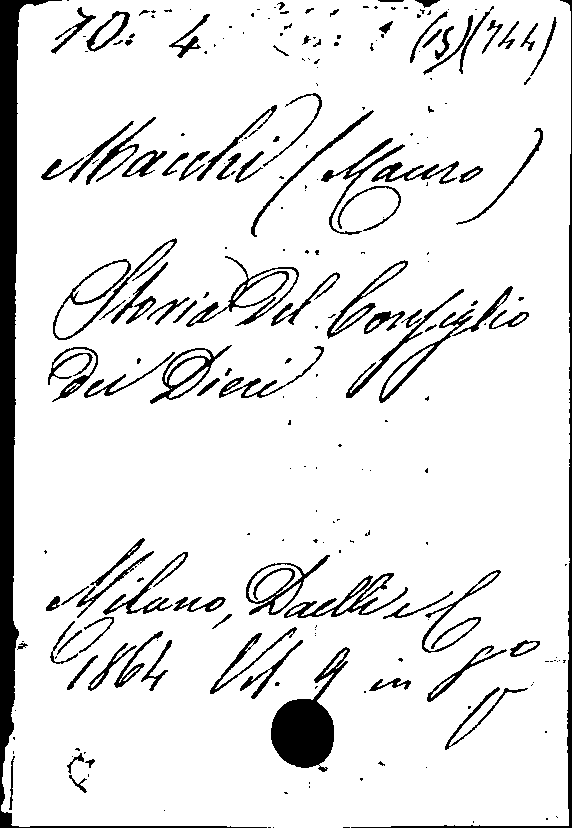 70. 4 (15)(744)
Macchi (Mauro)
Storia del Consiglio
dei Dieci
Milano, Daelli e C.
1864 Vol. 9 in